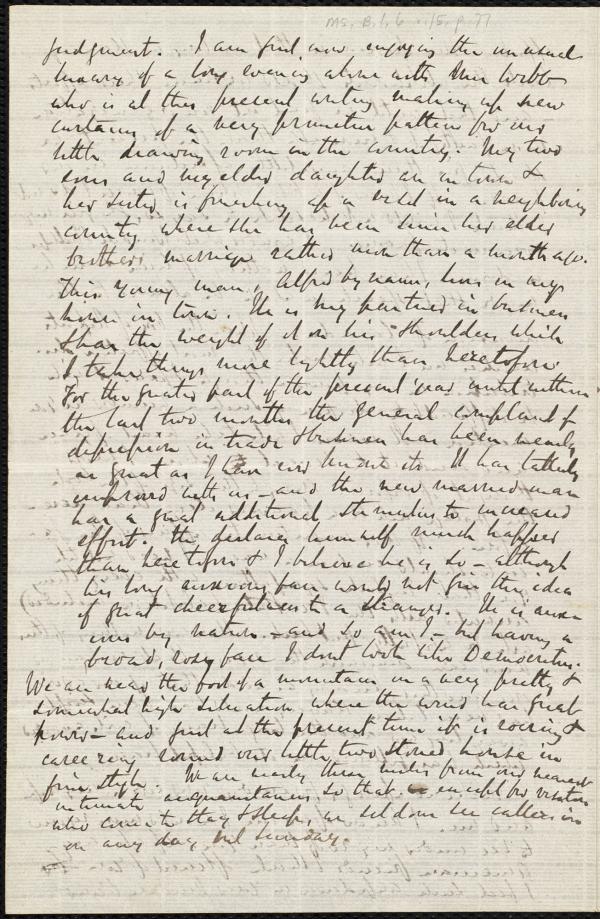 Ms. B.1.6 v.15, p.71
judgment. I am just now enjoying the unusual
luxury of a long evening alone with Mrs Webb
who is at this present writing making up new
curtains of a very primitive pattern for our
little drawing room in the country. My two
sons and my elder daughter are in town &
her sister is finishing up a visit in a neighboring
county where she has been since her elder
brothers marriage rather more than a month ago.
This young man, Alfred by name, lives in my
house in town. He is my partner in business
& has the weight of it on his shoulders which
I take things more lightly than heretofore
For the greater part of the present year until within
the last two months the general complaint of
depression in trade & business has been nearly
as great as I have ever known it. It has latterly
improved with us — and the new married man
has a great additional stimulus to increased
effort. He declares himself much happier
than heretofore & I believe he is so — although
his long anxious face would not give the idea
of great cheerfulness to a stranger. He is anxi-
ous by nature — and so am I — but having a
broad, rosy face I dont look like Democritus.
We are near the foot of a mountain on a very pretty &
somewhat high situation where the wind has great
power — and just at the present time it is roaring &
careering round our little two storied house in
fine style. We are nearly three miles from our nearest
intimate acquaintances, so that except for visitors
who come to stay & sleep, we seldom see callers in
on any day but Sunday.